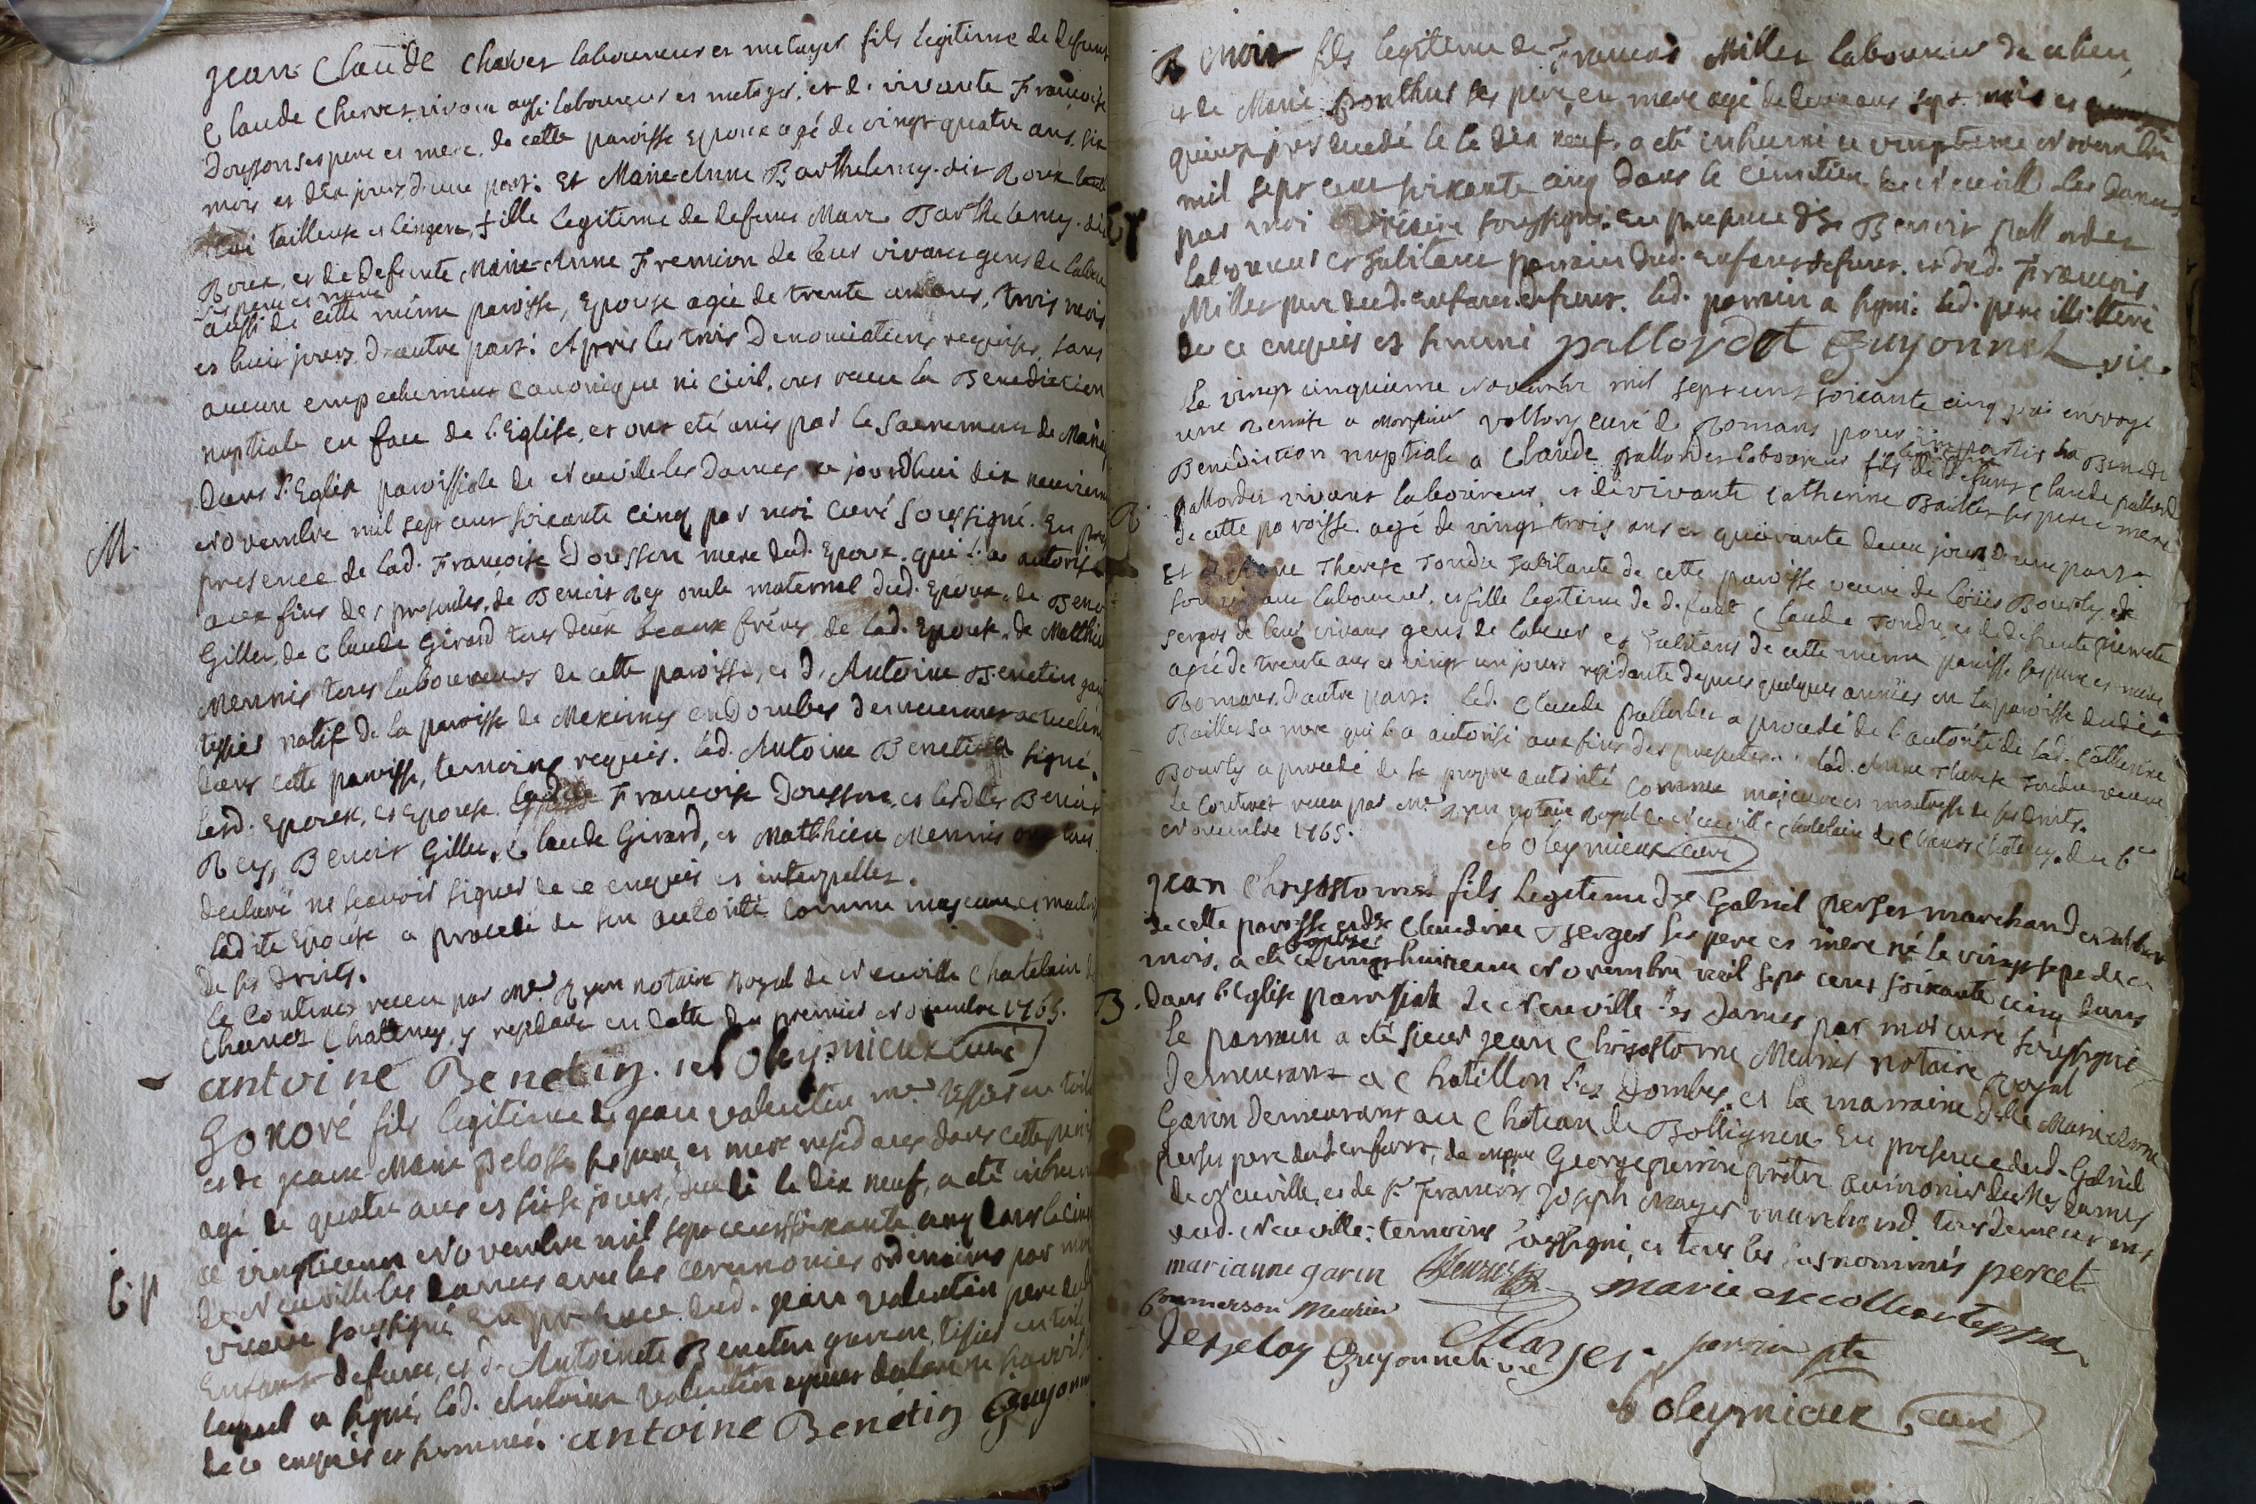 jean Claude chervet laboureur et metayer fils legitime de defunt
Claude Chervet vivant aussi laboureur et metayer, et de vivante Françoise
Dousson ses pere et mere, de cette paroisse Epoux agé de vingt quatre ans, six
mois et dix jours d'une part. Et Marie-Anne Barthelemy dit Roux
tailleuse et lingere, fille legitime de defunt Marc Barthelemy dit
Roux, et de defunte Marie-Anne Fremion de leur vivant gens de labeur
ses pere et mere
aussi de cette même paroisse, Epouse agée de trente un ans, trois mois
et huit jours d'autre part. Après les trois Denonciations requises, sans
aucun empechement canonique ni civil, ont receu la Benediction
nuptiale en face de l'Eglise, et ont eté unis par le Sacrement de Mariage
Dans l'Eglise paroissiale de Neuville les Dames, ce jourd'hui dix neuvieme
M.
novembre mil sept cent soixante cinq par moi curé soussigné. En
presence de lad. Françoise Dousson mere dud. Epoux qui l'a autorisé
aux fins des presentes, de Benoit Rey oncle maternel dud. Epoux, de Benoit
Gillet, de Claude Girard tous deux beaux freres de lad. Epouse, de Matthieu
Mennis tous laboureurs de cette paroisse, et d'Antoine Benetin garçon
tissier natif de la paroisse de Meximy en Dombes demeurant actuellement
dans cette paroisse, temoins requis. led. Antoine Benetin a signé,
lesd. Epoux, et Epouse Françoise Dousson, et lesdits Benoit
Rey, Benoit Gillet, Claude Girard, et Matthieu Mennis ont tous
declaré ne sçavoir signer de ce enquis et interpellez.
ladite Epouse a procedé de son autorité comme majeure et maitresse
de ses droits.
le Contract receu par Me. Ryon notaire Royal de Neuville Chatelain de
Chanoz Chatenay y residant en datte du premier novembre 1765.
antoine Benetin. Soleymieux curé
honoré fils legitime de jean valentin me. tissier en toile
et de jeanne-Marie Belosse ses pere et mere residants dans cette paroisse
agé de quatre ans et seize jours, decedé le dix neuf, a eté inhumé
ce vingtieme novembre mil sept cent soixante cinq dans le cimetiere
de Neuville les dames avec les ceremonies ordinaires par moi
vicaire soussigné En presence dud. jean valentin pere dud.
Enfant defunt, et d'Antoine Benetin garçon tissier en toile
lequel a signé, led. valentin ayant declaré ne sçavoir
de ce enquis et sommé. antoine Benetin Guyonnet
Benoit fils legitime de François Millet laboureur de ce lieu,
et de Marie Ponthus ses pere et mere agé de deux ans sept mois et
quinze jours decedé le dix neuf, a eté inhumé ce vingtieme novembre
mil sept cent soixante cinq dans le cimetiere de Neuville les Dames
par moi vicaire soussigné. En presence de Benoit pallordet
laboureur et habitant parrain dud. enfant defunt, et dud. François
Millet pere dud. enfant defunt. led. parrain a signé. led. pere illiteré
de ce enquis et sommé palloradet Guyonnet vic.
Le vingt cinquieme novembre mil sept cent soixante cinq j'ai envoyé
une Remise a Monsieur vollons curé de Romans pour impartir la
Benediction nuptiale a Claude pallordet laboureur fils legitime de defunt Claude
pallordet vivant laboureur et de vivante Catherine Baillet ses pere et mere
de cette paroisse agé de vingt trois ans et quarante deux jours d'une part.
Et Anne Therese Tondu habitante de cette paroisse veuve de Loüis Bourly de
son vivant laboureur, et fille legitime de defunt Claude Tondu, et de defunte pierrette
Serges de leur vivant gens de labeur et habitans de cette même paroisse ses pere et mere
agée de trente ans et vingt un jours residante depuis quelques années en la paroisse dudit
Romans d'autre part. led. Claude pallordet a procedé de l'autorité de lad. Catherine
Baillet sa mere qui l'a autorisé aux fins des presentes. lad. Anne Therese Tondu veuve
Bourly a procedé de sa propre autorité comme majeure et maitresse de ses droits.
Le Contract receu par Me. Ryon notaire Royal de Neuville Chatelain de Chanoz Chatenay du 6e
novembre 1765. Soleymieux curé
jean Chrysostome fils legitime de Sr. Gabriel perset marchand
de cette paroisse et de Claudine Serges ses pere et mere né le vingt sept de ce
mois, a eté baptisé ce vingt huitieme novembre mil sept cent soixante cinq dans
B.
dans l'Eglise paroissiale de Neuville les Dames par moi curé soussigné
le parrain a eté sieur jean Chrisostome Meunier notaire Royal
demeurant a Chatillon les Dombes, et la marraine Dlle Marie Anne
Garin demeurant au Chateau de En presence dud. Gabriel
perset pere dud. enfant, de messire George perrin prêtre aumonier des dames
de Neuville, et de Sr. François Joseph Mayer marchand tous demeurans
aud. Neuville; temoins soussignés, et tous les susnommés percet
marianne garin
Commerson Meunier
Guyonnet vic perrin ptre
Soleymieux curé